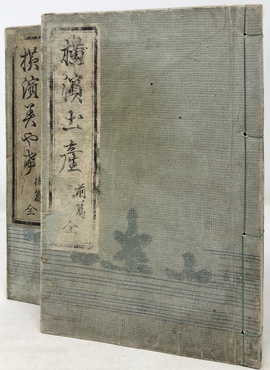 横濱土產
前篇
全
横濱美や
後篇
全